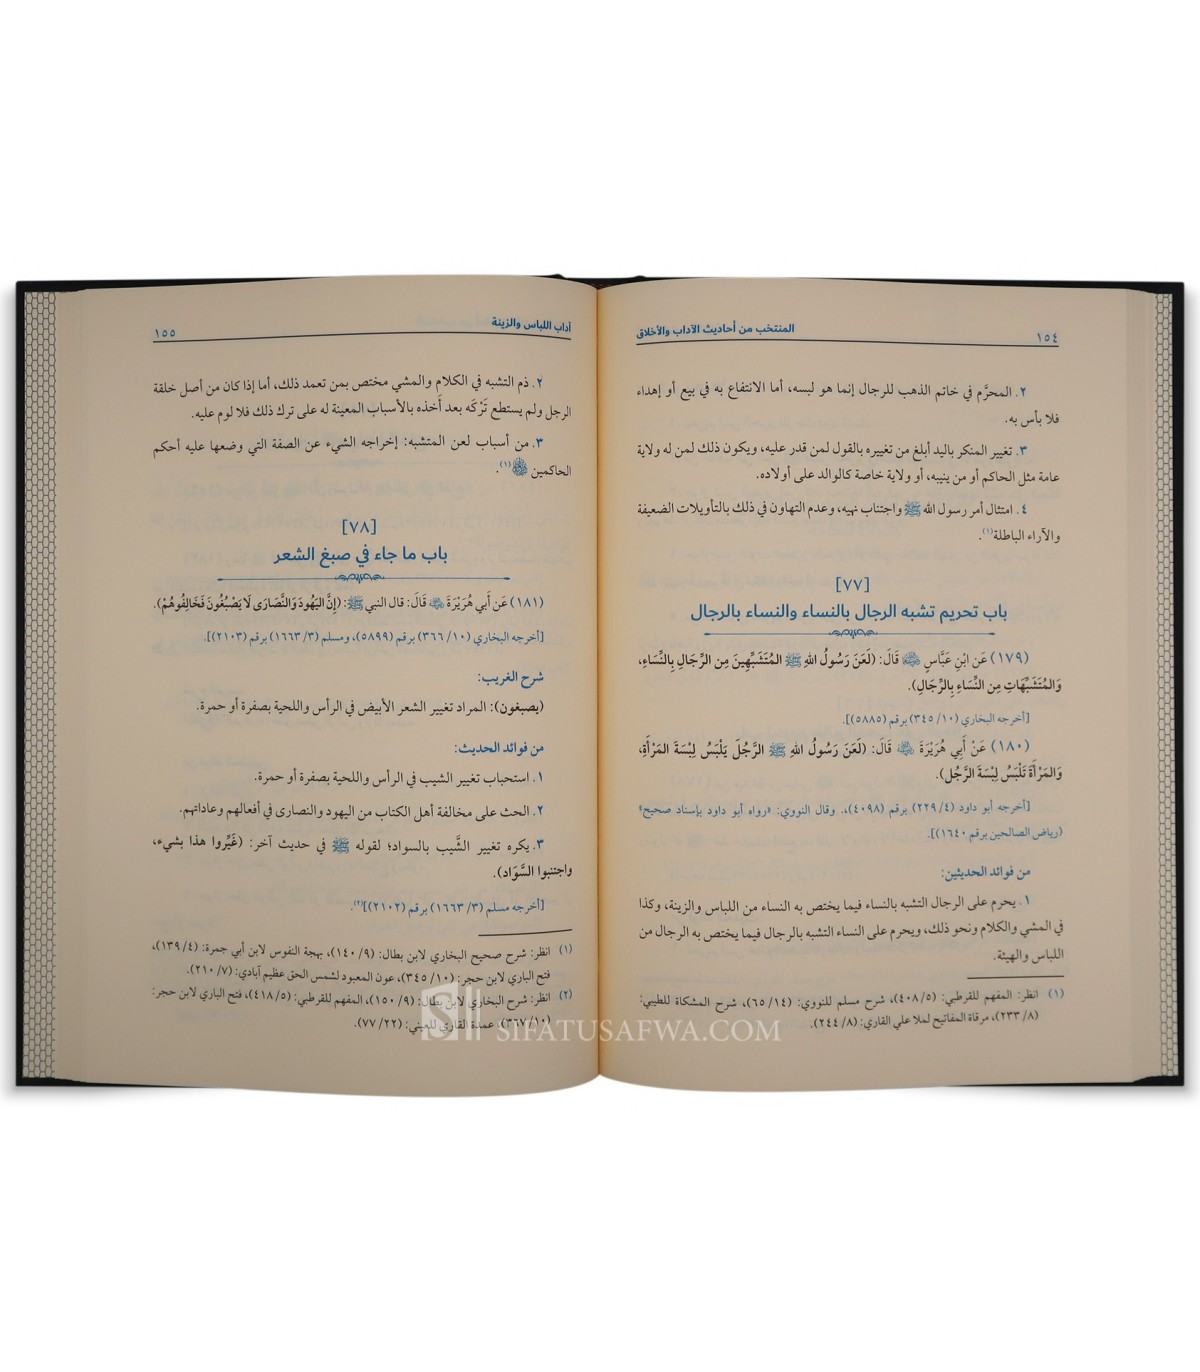 ١٥٤
المنتخب من أحاديث الآداب والأخلاق
٢. المحرَّم في خاتم الذهب للرجال إنما هو لبسه، أما الانتفاع به في بيع أو إهداء
فلا بأس به.
٣. تغيير المنكر باليد أبلغ من تغييره بالقول لمن قدر عليه، ويكون ذلك لمن له ولاية
عامة مثل الحاكم أو من ينيبه، أو ولاية خاصة كالوالد على أولاده.
٤. امتثال أمر رسول الله ﷺ واجتناب نهيه، وعدم التهاون في ذلك بالتأويلات الضعيفة
والآراء الباطلة(١).
[٧٧]
باب تحريم تشبه الرجال بالنساء والنساء بالرجال
(١٧٩) عَن ابْنِ عَبَّاسٍ قَالَ: (لَعَنَ رَسُولُ اللهِ ﷺ المُتَشَبِّهِينَ مِن الرِّجَالِ بِالنِّسَاءِ،
وَالمُتَشَبِّهَاتِ مِن النِّسَاءِ بِالرِّجَالِ).
[أخرجه البخاري (١٠/ ٣٤٥) برقم (٥٨٨٥)].
(١٨٠) عَنْ أَبِي هُرَيْرَةَ قَالَ: (لَعَنَ رَسُولُ اللهِ ﷺ الرَّجُلَ يَلْبَسُ لِبْسَةَ المَرْأَةِ،
وَالمَرْأَةَ تَلْبَسُ لِبْسَةَ الرَّجُلِ).
[أخرجه أبو داود (٤/ ٢٢٩) برقم (٤٠٩٨)، وقال النووي: «رواه أبو داود بإسناد صحيح»
(رياض الصالحين برقم ١٦٤٠)].
من فوائد الحديثين:
١. يحرم على الرجال التشبه بالنساء فيما يختص به النساء من اللباس والزينة، وكذا
في المشي والكلام ونحو ذلك، ويحرم على النساء التشبه بالرجال فيما يختص به الرجال من
اللباس والهيئة.
(١) انظر: المفهم للقرطبي: (٥/ ٤٠٨)، شرح مسلم للنووي: (١٤/ ٦٥)، شرح المشكاة للطيبي:
(٨/ ٢٣٣)، مرقاة المفاتيح لملا علي القاري: (٨/ ٢٤٤).
آداب اللباس والزينة
١٥٥
٢. ذم التشبه في الكلام والمشي مختص بمن تعمد ذلك، أما إذا كان من أصل خلقة
الرجل ولم يستطع تَرْكَه بعد أَخذه بالأسباب المعينة له على ترك ذلك فلا لوم عليه.
٣. من أسباب لعن المتشبه: إخراجه الشيء عن الصفة التي وضعها عليه أحكم
الحاكمين (١).
[٧٨]
باب ما جاء في صبغ الشعر
(١٨١) عَن أَبي هُرَيْرَةَ قَالَ: قال النبي ﷺ: (إِنَّ اليَهُودَ وَالنَّصَارَى لَا يَصْبُغُونَ فَخَالِفُوهُمْ).
[أخرجه البخاري (١٠/ ٣٦٦) برقم (٥٨٩٩)، ومسلم (٣/ ١٦٦٣) برقم (٢١٠٣)].
شرح الغريب:
(يصبغون): المراد تغيير الشعر الأبيض في الرأس واللحية بصفرة أو حمرة.
من فوائد الحديث:
١. استحباب تغيير الشيب في الرأس واللحية بصفرة أو حمرة.
٢. الحث على مخالفة أهل الكتاب من اليهود والنصارى في أفعالهم وعاداتهم.
٣. يكره تغيير الشَّيب بالسواد؛ لقوله ﷺ في حديث آخر: (غَيِّروا هذا بشيء،
واجتنبوا السَّوَاد).
[أخرجه مسلم (٣/ ١٦٦٣) برقم (٢١٠٢)](٢).
(١) انظر: شرح صحيح البخاري لابن بطال: (٩/ ١٤٠)، بهجة النفوس لابن أبي جمرة: (٤/ ١٣٩)،
فتح الباري لابن حجر: (١٠/ ٣٤٥)، عون المعبود لشمس الحق عظيم آبادي: (٧/ ٢١٠).
(٢) انظر: شرح البخاري لابن بطال: (٩/ ١٥٠)، المفهم للقرطبي: (٥/ ٤١٨)، فتح الباري لابن حجر:
(١٠/ ٣٦٧)، عمدة القاري للعيني: (٢٢/ ٧٧).
SIFATUSAFWA.COM